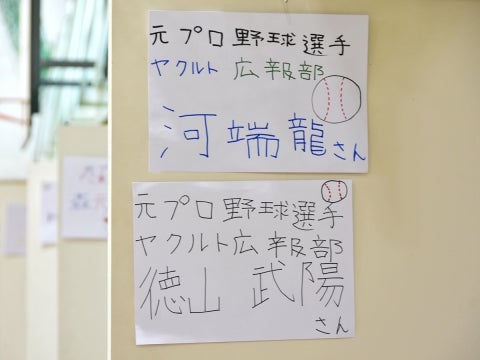 元プロ野球選手
ヤクルト 広報部
河端龍さん
元プロ野球選手
ヤクルト広報部
徳山 武陽
さん